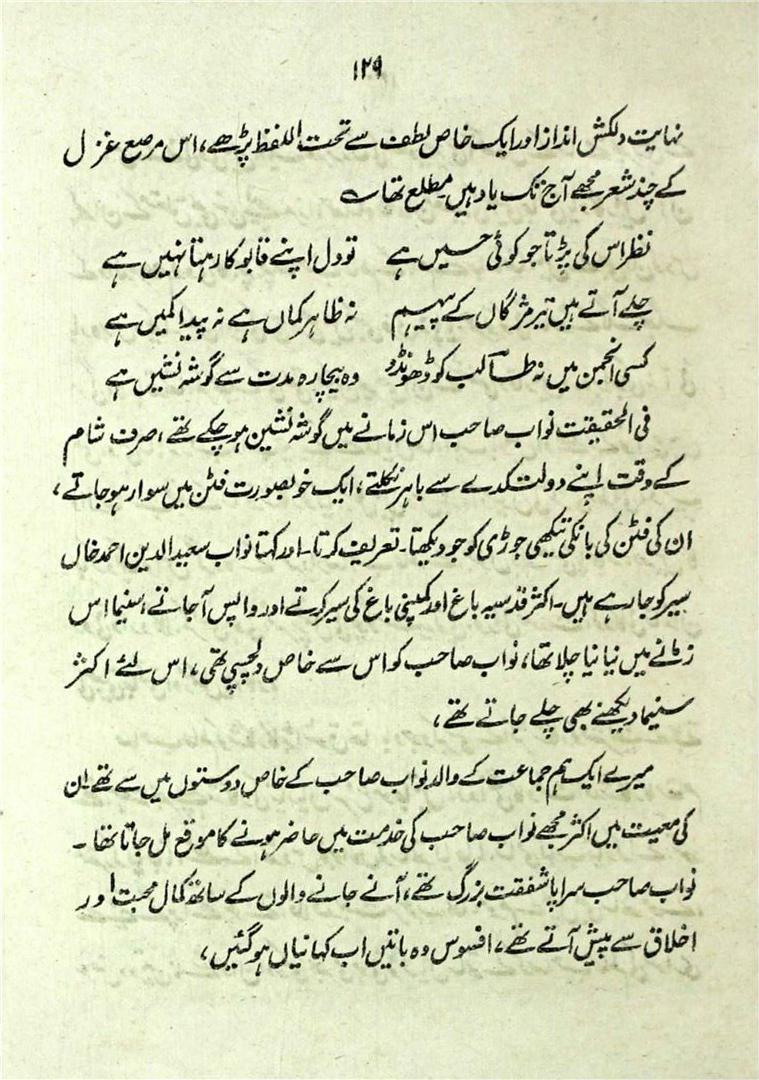 ۱۲۹
نہایت دلکش انداز اور ایک خاص لطف سے تحت اللفظ پڑھے، اس مرصع غزل
کے چند شعر مجھے آج تک یاد ہیں مطلع تھا ؎
نظر اس کی پڑتا جو کوئی حسیں ہے تو دل اپنے قابو کا رہتا نہیں ہے
چلے آتے ہیں تیر مژگاں کے پیہم نہ ظاہر کماں ہے نہ پیدا کمیں ہے
کسی انجمن میں نہ طالب کو ڈھونڈو وہ بیچارہ مدت سے گوشہ نشیں ہے
فی الحقیقت نواب صاحب اس زمانے میں گوشہ نشین ہو چکے تھے، صرف شام
کے وقت اپنے دولت کدے سے باہر نکلتے، ایک خوبصورت فٹن میں سوار ہو جاتے،
ان کی فٹن کی بانکی تیکھی جوڑی کو جو دیکھتا۔ تعریف کرتا۔ اور کہتا نواب سعید الدین احمد خاں
سیر کو جا رہے ہیں۔ اکثر قدسیہ باغ اور کمپنی باغ کی سیر کرتے اور واپس آ جاتے، سنیما اس
زمانے میں نیا نیا چلا تھا، نواب صاحب کو اس سے خاص دلچسپی تھی، اس لئے اکثر
سنیما دیکھنے بھی چلے جاتے تھے،
میرے ایک ہم جماعت کے والد نواب صاحب کے خاص دوستوں میں سے تھے ان
کی معیت میں اکثر مجھے نواب صاحب کی خدمت میں حاضر ہونے کا موقع مل جاتا تھا۔
نواب صاحب سراپا شفقت بزرگ تھے، آنے جانے والوں کے ساتھ کمال محبت اور
اخلاق سے پیش آتے تھے، افسوس وہ باتیں اب کہانیاں ہو گئیں،